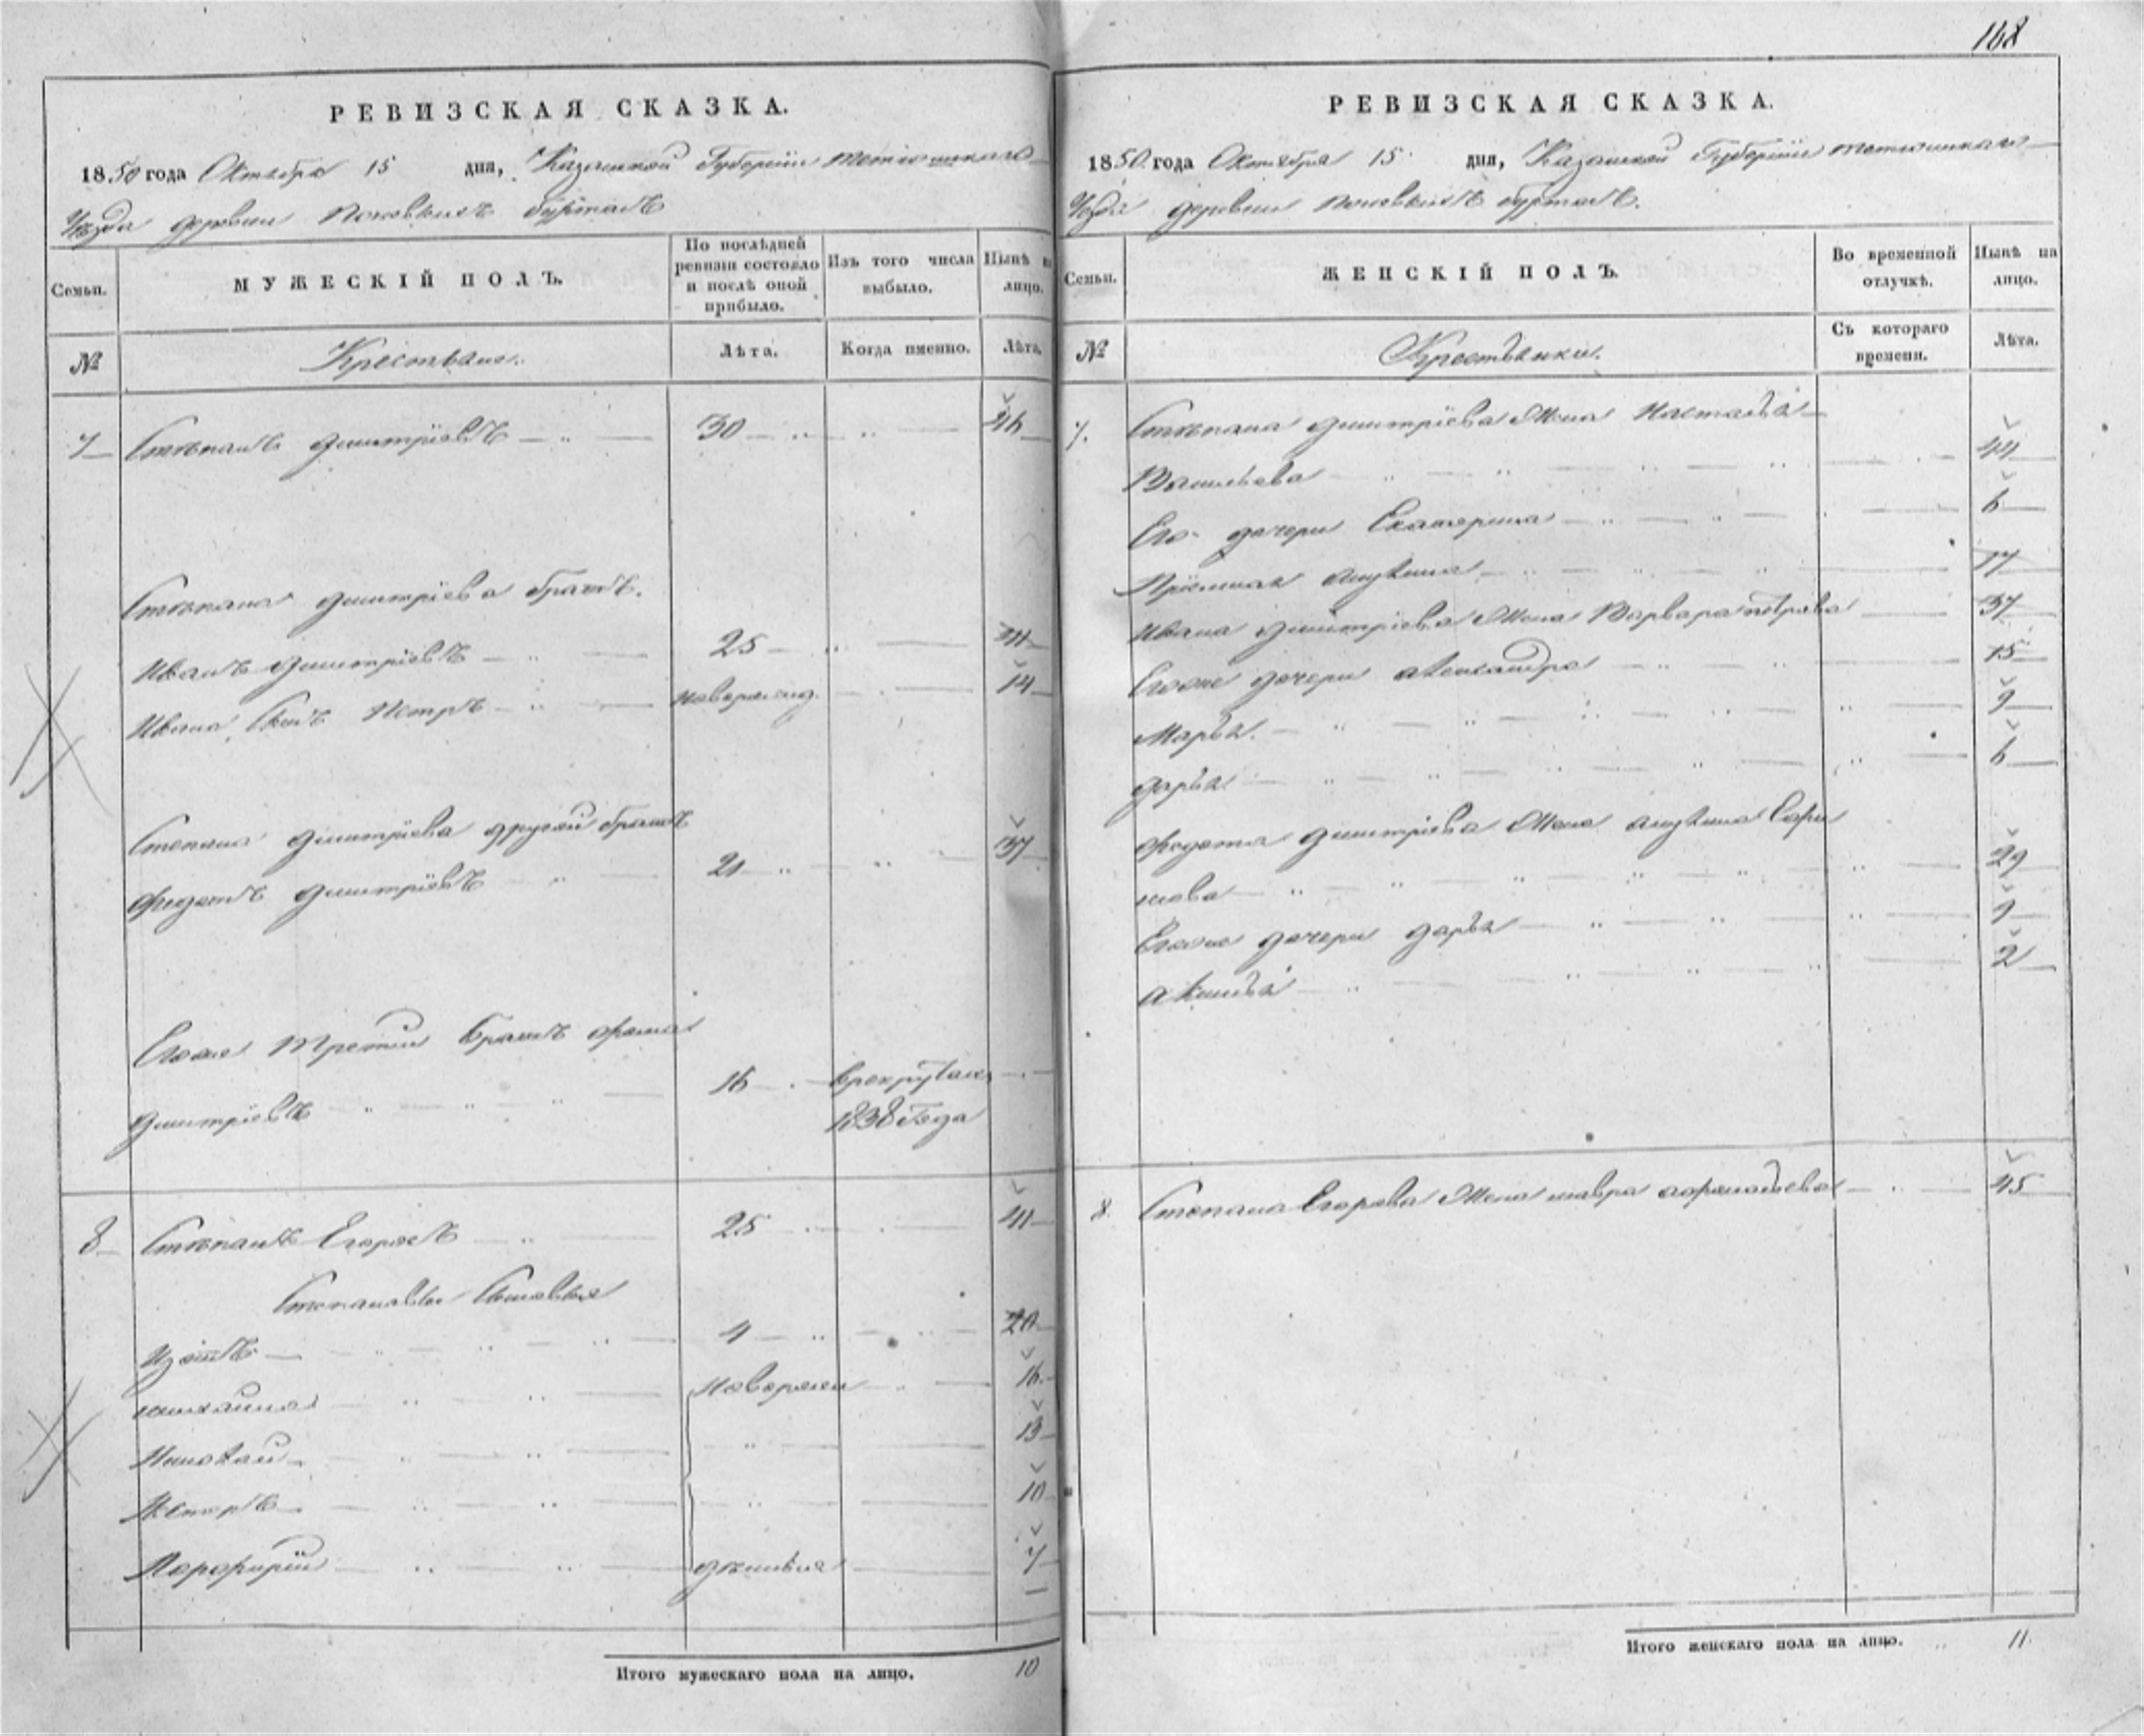 168
РЕВИЗСКАЯ СКАЗКА.
1850 года Октября 15 дня, Казанской Губернии тетюшскаго
Уезда деревни
Семьи.
МУЖЕСКІЙ ПОЛЪ.
По послѣдней ревизіи состояло и послѣ оной прибыло.
Изъ того числа выбыло.
Нынѣ на лицо.
№
Крестьяне.
Лѣта.
Когда именно.
Лѣта.
7 Степанъ дмитріевъ 30 46
Степана дмитріева братъ.
Иванъ дмитріевъ 25 41
Ивана Сынъ Петръ 14
Степана дмитріева другой братъ
Федотъ дмитріевъ 21 37
Егоже Третий братъ фома
дмитріевъ 16 врекруты
1838 Года
8 Степанъ Егоровъ 25 41
Степановы Сыновья
4 20
михаила 16
Николай 13
Петръ 10
Порфирій 7
Итого мужескаго пола на лицо. 10
РЕВИЗСКАЯ СКАЗКА.
1850 года Октября 15 дня, Казанской Губернии тетюшскаго
Уезда деревни
Семьи.
ЖЕНСКІЙ ПОЛЪ.
Во временной отлучкѣ.
Нынѣ на лицо.
№
Крестьянки.
Съ котораго времени.
Лѣта.
7. Степана дмитріева Жена Насталья
Васильева 44
Его дочери Екатерина 6
17
Ивана дмитріева Жена Варвара петрова 37
Егоже дочери александра 15
Марья 9
дарья 6
Федота дмитріева Жена
29
Егоже дочери дарья 9
2
8. Степана Егорова Жена мавра 45
Итого женскаго пола на лицо. 11.